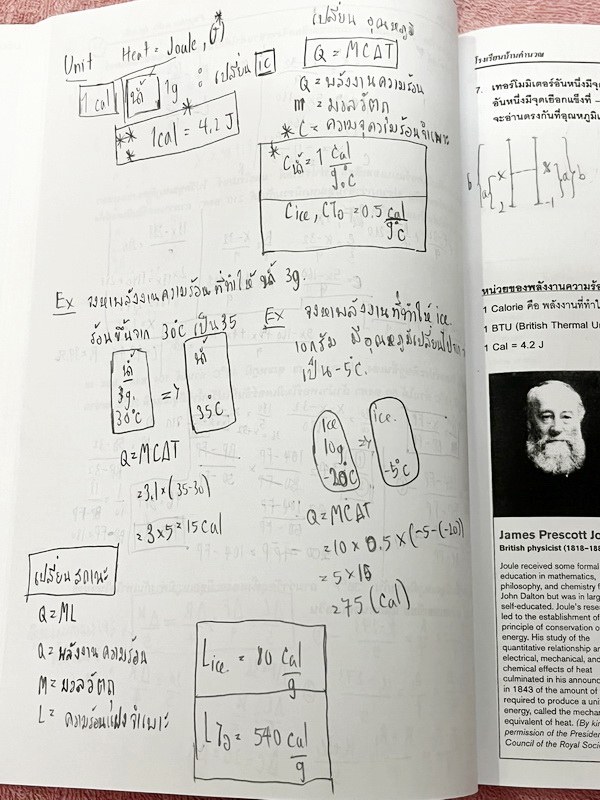 Unit Heat = Joule,
1 cal น้ำ 1g : เปลี่ยน 1C
** 1cal = 4.2 J
เปลี่ยน อุณหภูมิ
Q = MCΔT
Q = พลังงานความร้อน
m = มวลวัตถุ
* C = ความจุความร้อนจำเพาะ
* Cน้ำ = 1 cal/g°C
Cice, Cไอ = 0.5 cal/g°C
Ex จงหาพลังงานความร้อนที่ทำให้ น้ำ 3g.
ร้อนขึ้นจาก 30°C เป็น 35
น้ำ
3g.
30°C
=>
น้ำ
35°C
Q = MCΔT
= 3.1 × (35-30)
= 3 × 5 = 15 Cal
Ex จงหาพลังงานที่ทำให้ ice.
10 กรัม มีอุณหภูมิเปลี่ยนไปจาก
เป็น -5°C.
ice
10g
-20°C
=>
ice.
-5°C
Q = MCΔT
= 10 × 0.5 × (-5-(-20))
= 5 × 15
= 75 (Cal)
เปลี่ยนสถานะ
Q = ML
Q = พลังงานความร้อน
M = มวลวัตถุ
L = ความร้อนแฝงจำเพาะ
Lice = 80 cal/g
Lไอ = 540 cal/g
โรงเรียนบ้านคำนวณ
7. เทอร์โมมิเตอร์อันหนึ่งมีจุด
อันหนึ่งมีจุดเยือกแข็งที่ -
จะอ่านตรงกันที่อุณหภูมิ
b a x
2
-1
a b
หน่วยของพลังงานความร้อ
1 Calorie คือ พลังงานที่ทำใ
1 BTU (British Thermal U
1 Cal = 4.2 J
James Prescott Jo
British physicist (1818–188
Joule received some formal
education in mathematics,
philosophy, and chemistry f
John Dalton but was in larg
self-educated. Joule's resea
led to the establishment of
principle of conservation o
energy. His study of the
quantitative relationship a
electrical, mechanical, and
chemical effects of heat
culminated in his announc
in 1843 of the amount of
required to produce a uni
energy, called the mechan
equivalent of heat. (By kin
permission of the Presiden
Council of the Royal Socie